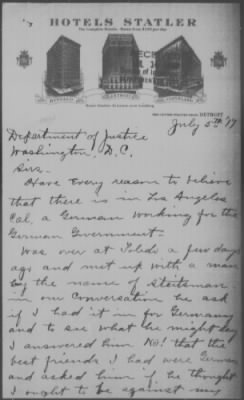 HOTELS STATLER
BUFFALO
DETROIT
CLEVELAND
DETROIT
July 5th '17
Department of Justice
Washington, D.C.
Sirs.
Have every reason to believe
that there is in Los Angeles
Cal. a German working for the
German Government.
Was over at Toledo a few days
ago and met up with a man
by the name of Steitsman
in our conversation he ask
if I had it in for Germany
and to see what he might say
I answered him No! that the
best friends I had were German
and asked him if he thought
I ought to be against my